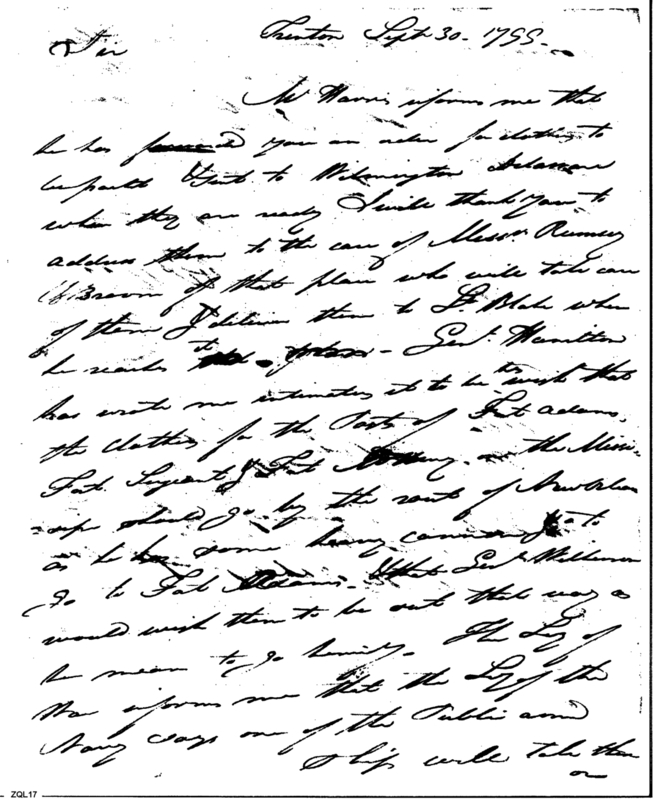 Trenton Sept 30. 1799.
Sir
Mr Harris informs me that
he has you an order for clothing to
be packt & sent to Wilmington Delaware
when they are ready I will thank you to
address them to the care of Messrs. Rumsey
& Brown of that place who will take care
of them & deliver them to Lt. Blake when
he reaches it - Genl. Hamilton
has wrote me intimates it to be his wish that
the clothing for the Posts of Fort Adams,
Fort Sargent & Fort on the Missi-
sipi should go by the rout of New Orleans
as he has some heavy cannon to
go to Fort Adams. that Genl. Wilkinson
would wish them to be sent that way as
he means to go himself. The Secy of
War informs me that the Secy of the
Navy says one of the Public armd
Ships will take them
on
ZQL17